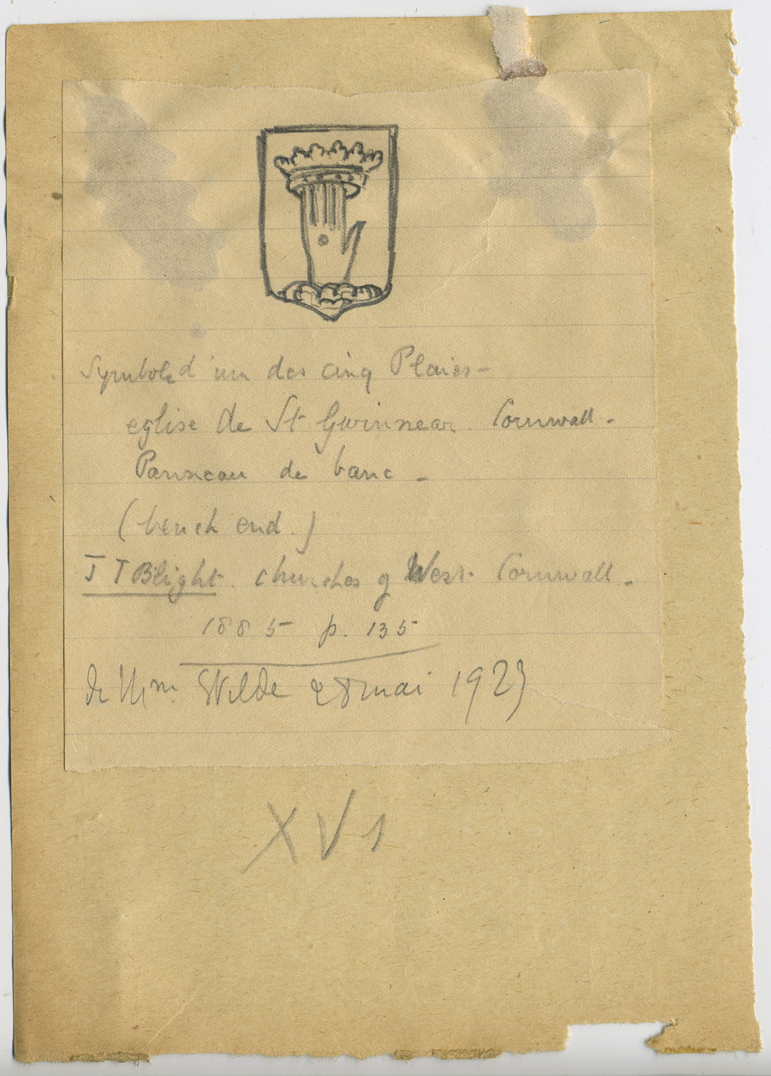 Symbole d'un des cinq Plaies -
eglise de St Gwinnear. Cornwall.
Panneau de banc -
(bench end)
J T Blight. Churches of West. Cornwall.
1885 p. 135
de Mme Wilde 28 mai 1923
XV1